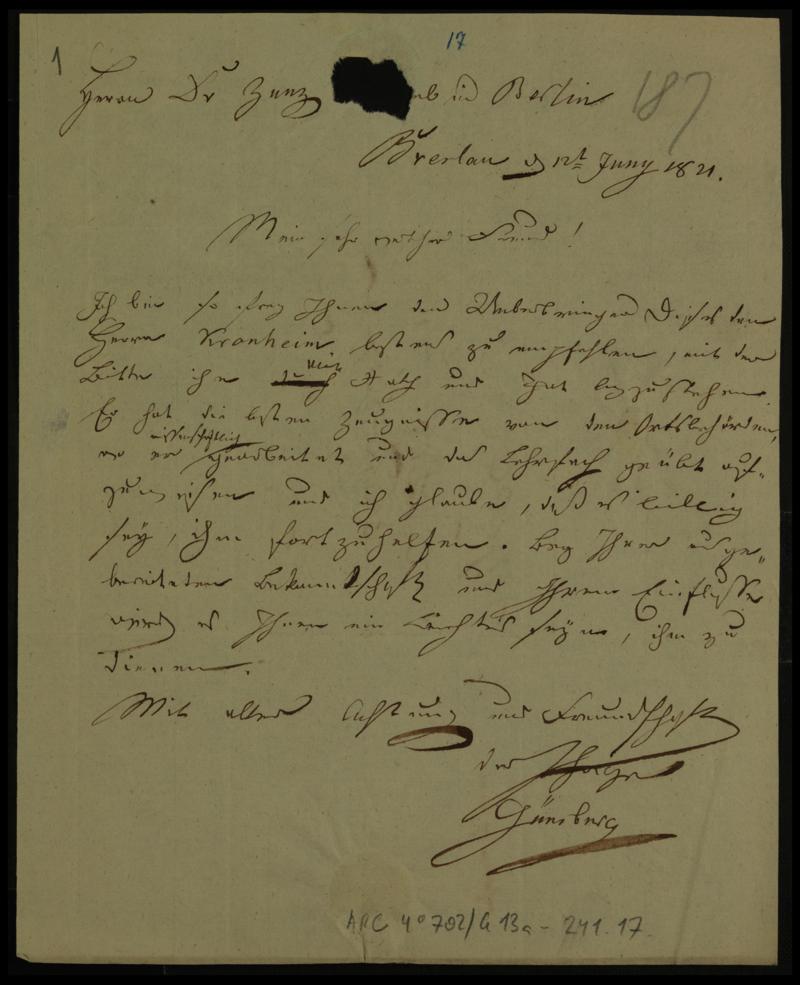 1
17
187
Herrn Dr Zunz in Berlin
Breslau d 12t Juny 1821.
Mein sehr werther Freund!
Ich bin so frey Ihnen den Ueberbringer Dieses den
Herrn Kronheim bestens zu empfehlen, mit der
Bitte ihm mit Rath und That beyzustehen.
Er hat die besten Zeugnisse von den Ortsbehörden,
wo er wissenschaftlich gearbeitet und das Lehrfach geübt auf-
zuweisen und ich glaube, daß es billig
sey, ihm fortzuhelfen. Bey Ihrer ausge-
breiteten Bekanntschaft und Ihrem Einflusse
wird es Ihnen ein Leichtes seyn, ihm zu
dienen.
Mit aller Achtung und Freundschaft
der Ihrige
Günsburg
ARC 4° 792/G 13a - 241.17.